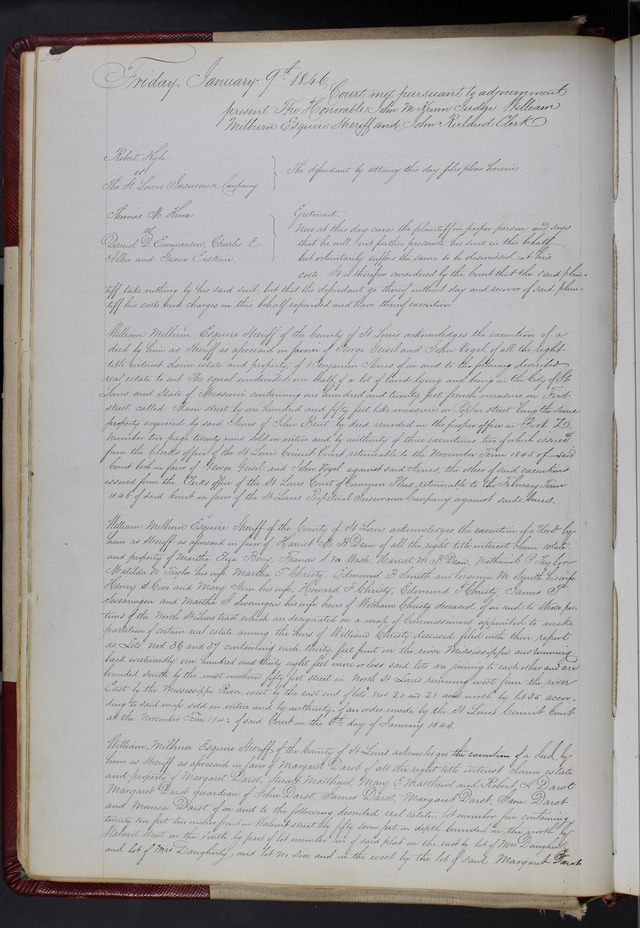 Friday, January 9th 1846
Court met pursuant to adjournment
present The Honorable John M. Krum Judge William
Milburn Esquire Sheriff and John Ruland Clerk
Robert Hyle
vs
The St Louis Insurance Company
The defendant by attorney this day files pleas herein.
Thomas M.
vs
Daniel D Emmerson, Charles E
Allen and Greene Erskine
Ejectment
Now at this day comes the plaintiff in proper person and says
that he will not further prosecute his suit in this behalf
but voluntarily suffers the same to be dismissed at his
costs. It is therefore considered by the Court that the said plain-
tiff take nothing by his said suit, but that the defendant go thereof without day and recover of said plain-
tiff his costs and charges in this behalf expended and have thereof execution.
William Milburn Esquire Sheriff of the County of St Louis acknowledges the execution of a
deed by him as Sheriff as aforesaid in favor of George and John Vogel of all the right
title interest claim estate and property of Benjamin of in and to the following described
real estate to wit The equal undivided one half of a lot of land lying and being in the City of St
Louis and State of Missouri containing one hundred and twenty feet french measure on First
street called Main street by one hundred and fifty feet like measure on street being the same
property acquired by said of John Bent by deed recorded in the proper office in Book
Number two page twenty nine sold in virtue and by authority of three executions two of which issued
from the Clerks office of the St Louis Circuit Court returnable to the November Term 1845 of said
Court both in favor of George and John Vogel against said the other of said executions
issued from the Clerks office of the St Louis Court of Common Pleas returnable to the February Term
1846 of said Court in favor of the St Louis Perpetual Insurance Company against said
William Milburn Esquire Sheriff of the County of St Louis acknowledges the execution of a Deed by
him as Sheriff as aforesaid in favor of Harriet M B Dean of all the right title interest claim estate
and property of Martha Eliza Bray, Frances S M Wash, Harriet M B Dean, Nathaniel P Taylor
Matilda N Taylor his wife, Martha T Christy, Edmund B Smith and Virginia M Smith his wife
Henry S Coxe and Mary Ann his wife, Howard F Christy, Edmund T Christy, James T
Swearingen and Martha S Swearingen his wife heirs of William Christy deceased of in and to those por-
tions of the North St Louis tract which are designated on a map of Commissioners appointed to make
partition of certain real estate among the heirs of William Christy deceased filed with their report
as Lots Nos 36 and 37 containing each thirty feet front on the river Mississippi and running
back westwardly one hundred and thirty eight feet more or less said lots are joining to each other and are
bounded south by the most northern fifty foot street in North St Louis running west from the river
East by the Mississippi River west by the east end of lots Nos 20 and 21 and north by lot 35 accor-
ding to said map sold in virtue and by authority of an order made by the St Louis Circuit Court
at the November Term 1842 of said Court on the 6th day of January 1843.
William Milburn Esquire Sheriff of the County of St Louis acknowledges the execution of a Deed by
him as Sheriff as aforesaid in favor of Margaret Darst of all the right title interest claim estate
and property of Margaret Darst, Matthews, Mary E Matthews and Robert A Darst
Margaret Darst guardian of John Darst, James Darst, Margaret Darst, Jane Darst
and Monica Darst of in and to the following described real estate, lot number five containing
twenty two feet two inches front on Walnut street by fifty seven feet in depth bounded on the north by
Walnut street on the south by part of lot number two of said plat on the east by lot of Mrs Daugherty
and lot of Mrs Daugherty, and lot no six and on the west by the lot of said Margaret Darst